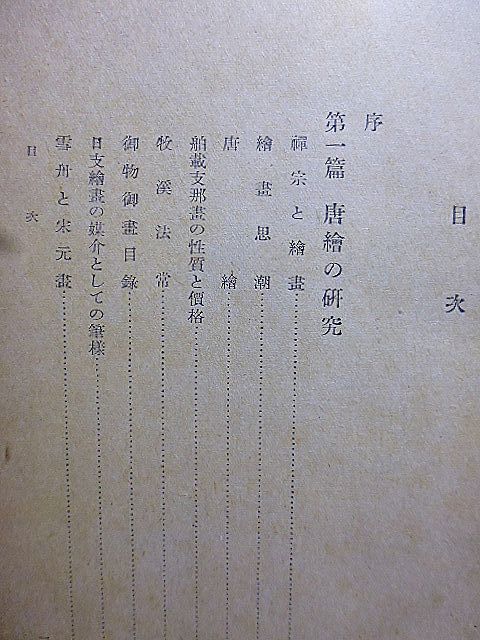 目次
序
第一篇 唐繪の硏究
禪宗と繪畫
繪畫思潮
唐繪
舶載支那畫の性質と價格
牧溪法常
御物御畫目錄
日支繪畫の媒介としての筆樣
雪舟と宋元畫
目次